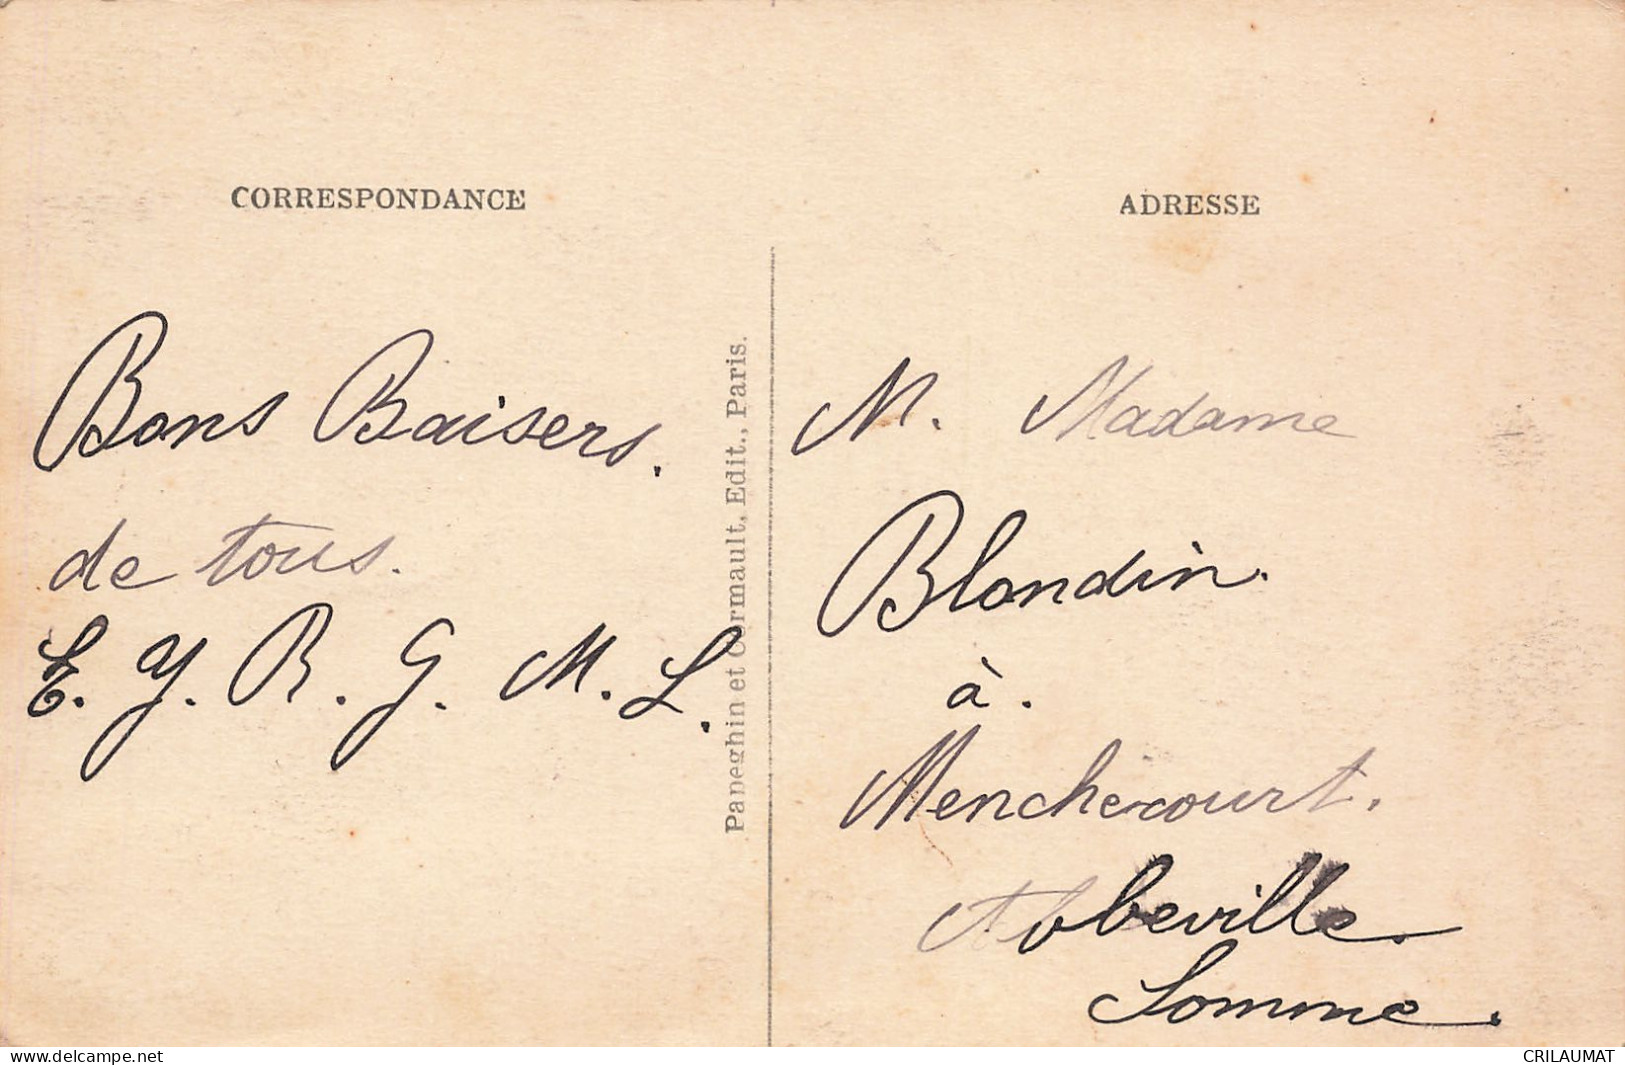 CORRESPONDANCE
Bons Baisers.
de tous.
E. Y. R. G. M. L.
Papeghin et Cormault, Edit., Paris.
ADRESSE
M. Madame
Blondin.
à.
Menchecourt.
Abbeville.
Somme.
www.delcampe.net
CRILAUMAT